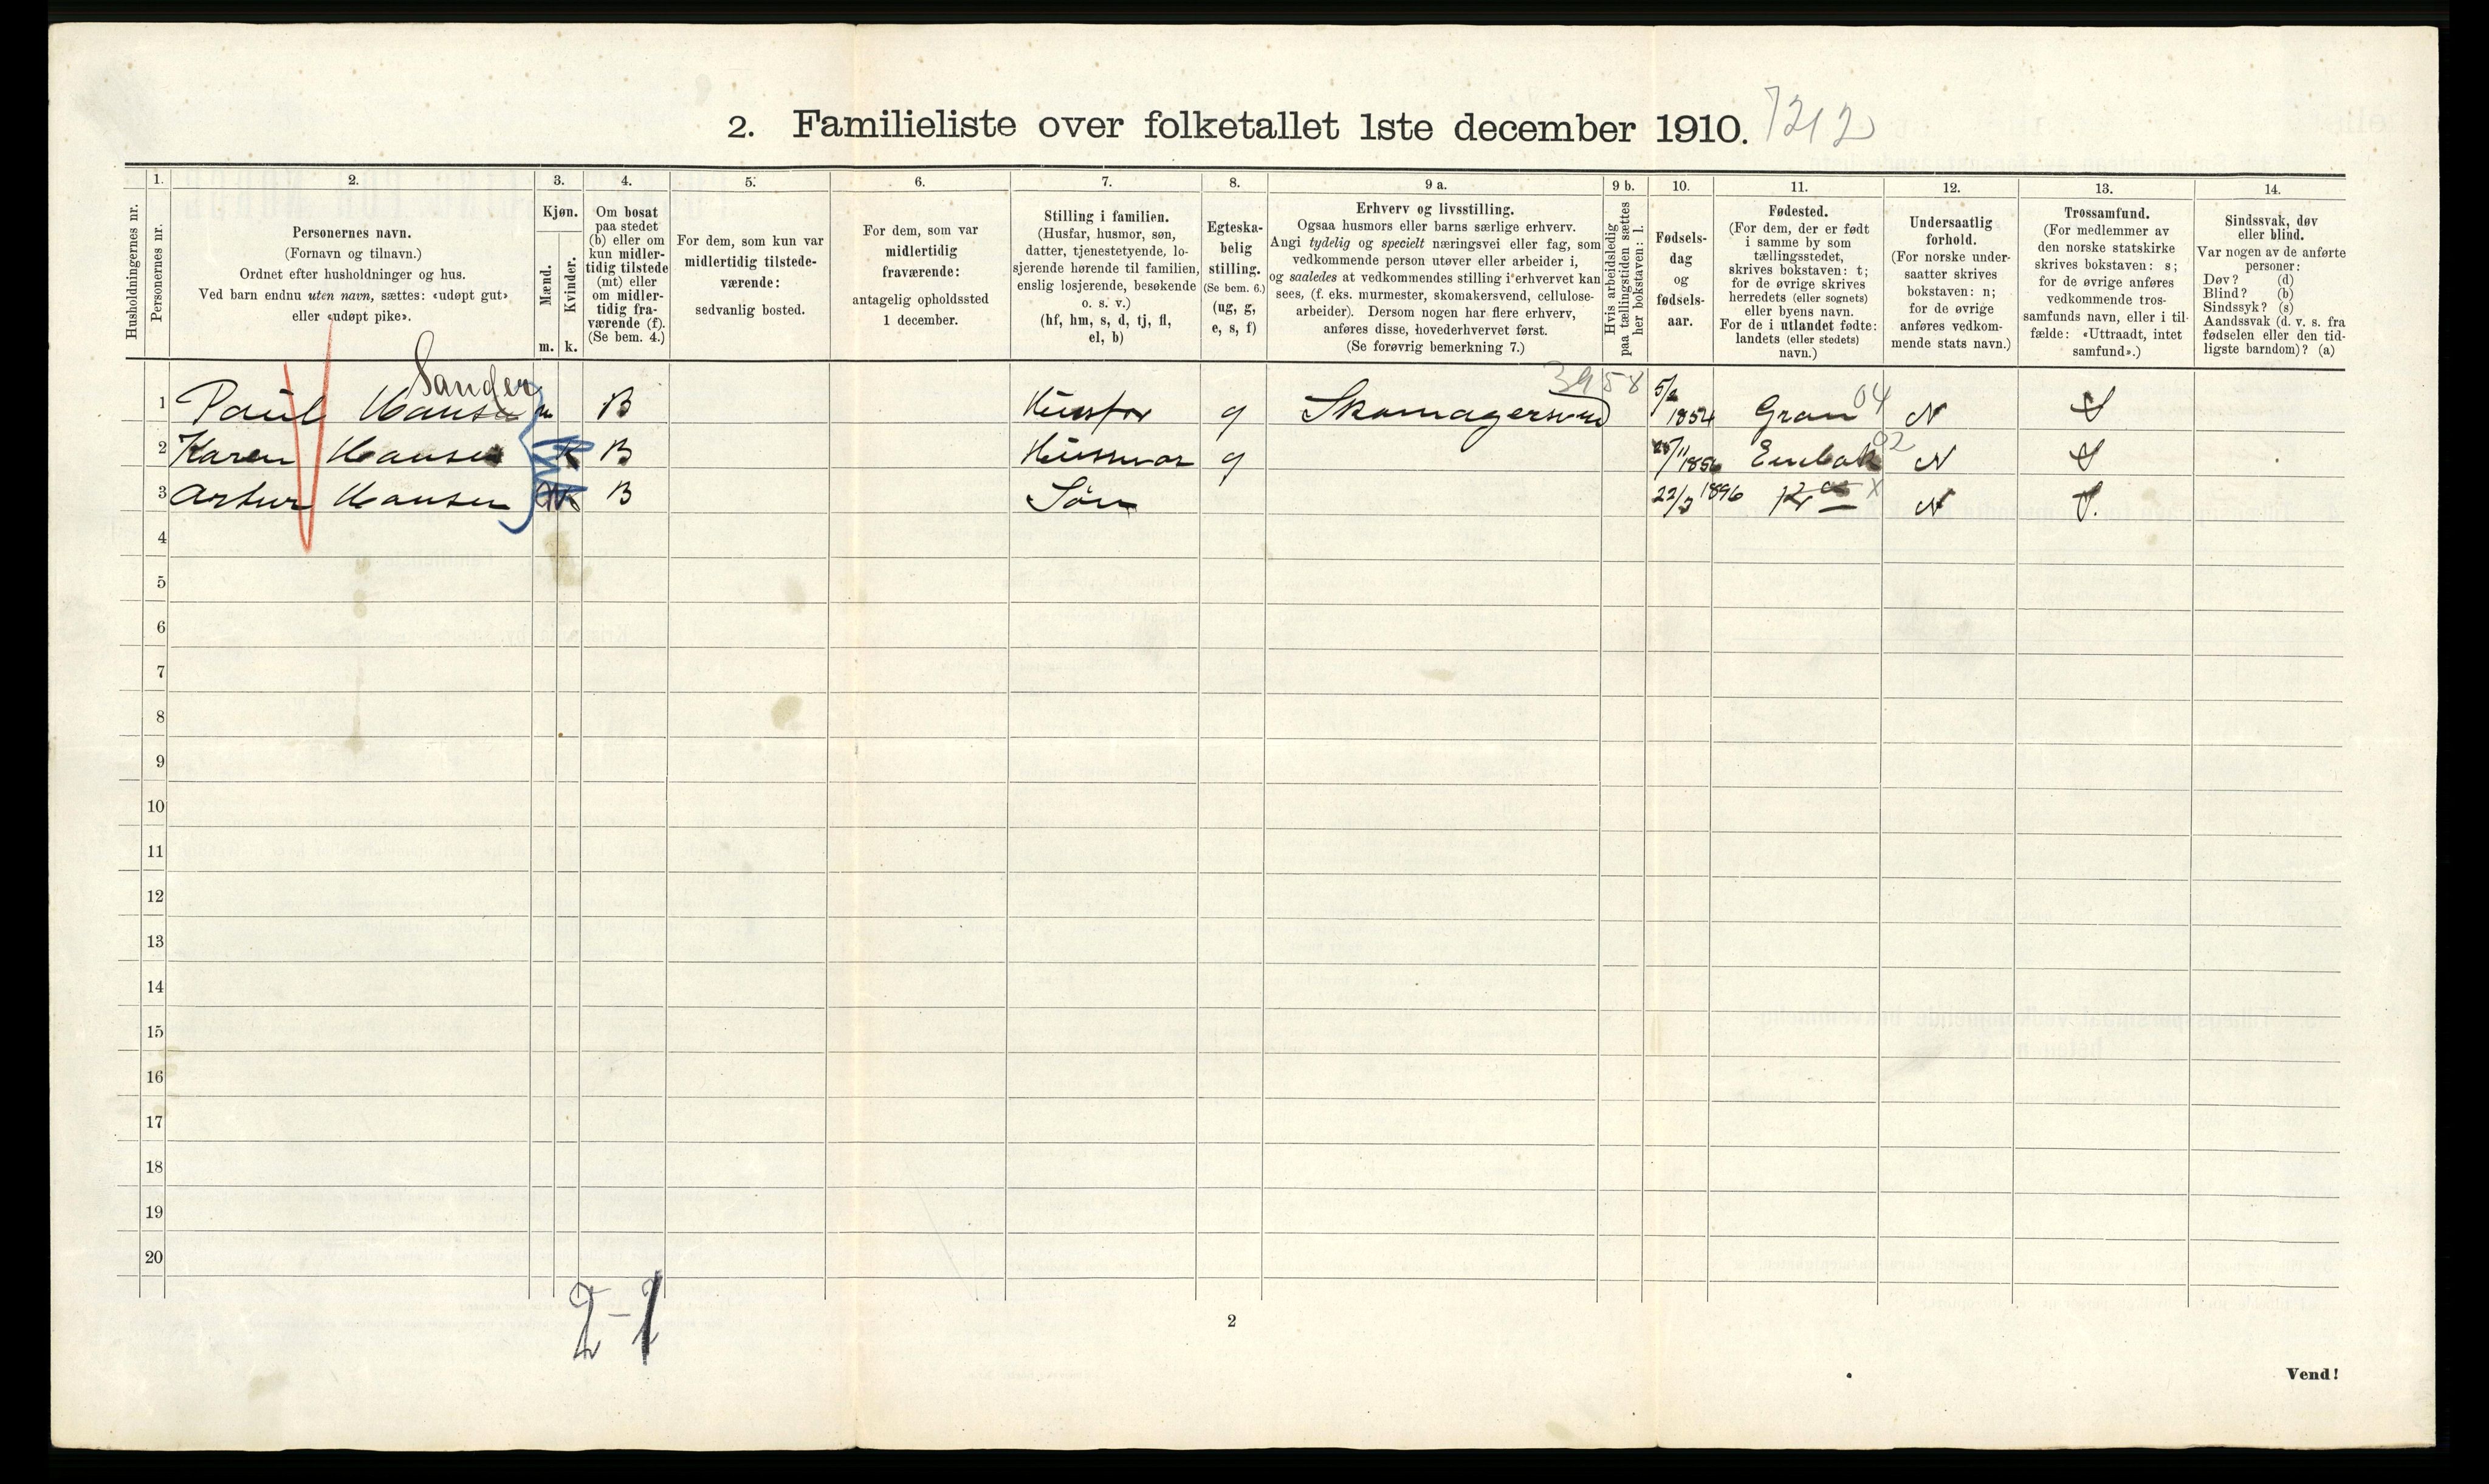 2. Familieliste over folketallet 1ste december 1910. 7212
Husholdningernes nr.
1.
Personernes nr.
2.
Personernes navn.
(Fornavn og tilnavn.)
Ordnet efter husholdninger og hus.
Ved barn endnu uten navn, sættes: «udøpt gut»
eller «udøpt pike».
3.
Kjøn.
Mænd.
Kvinder.
m. k.
4.
Om bosat
paa stedet
(b) eller om
kun midler-
tidig tilstede
(mt) eller
om midler-
tidig fra-
værende (f).
(Se bem. 4.)
5.
For dem, som kun var
midlertidig tilstede-
værende:
sedvanlig bosted.
6.
For dem, som var
midlertidig
fraværende:
antagelig opholdssted
1 december.
7.
Stilling i familien.
(Husfar, husmor, søn,
datter, tjenestetyende, lo-
sjerende hørende til familien,
enslig losjerende, besøkende
o. s. v.)
(hf, hm, s, d, tj, fl,
el, b)
8.
Egteska-
belig
stilling.
(Se bem. 6.)
(ug, g,
e, s, f)
9 a.
Erhverv og livsstilling.
Ogsaa husmors eller barns særlige erhverv.
Angi tydelig og specielt næringsvei eller fag, som
vedkommende person utøver eller arbeider i,
og saaledes at vedkommendes stilling i erhvervet kan
sees, (f. eks. murmester, skomakersvend, cellulose-
arbeider). Dersom nogen har flere erhverv,
anføres disse, hovederhvervet først.
(Se forøvrig bemerkning 7.)
9 b.
Hvis arbeidsledig
paa tællingstiden sættes
her bokstaven: l.
10.
Fødsels-
dag
og
fødsels-
aar.
11.
Fødested.
(For dem, der er født
i samme by som
tællingsstedet,
skrives bokstaven: t;
for de øvrige skrives
herredets (eller sognets)
eller byens navn.
For de i utlandet fødte:
landets (eller stedets)
navn.)
12.
Undersaatlig
forhold.
(For norske under-
saatter skrives
bokstaven: n;
for de øvrige
anføres vedkom-
mende stats navn.)
13.
Trossamfund.
(For medlemmer av
den norske statskirke
skrives bokstaven: s;
for de øvrige anføres
vedkommende tros-
samfunds navn, eller i til-
fælde: «Uttraadt, intet
samfund».)
14.
Sindssvak, døv
eller blind.
Var nogen av de anførte
personer:
Døv? (d)
Blind? (b)
Sindssyk? (s)
Aandssvak (d. v. s. fra
fødselen eller den tid-
ligste barndom)? (a)
Sander 3958
1 Paul Hansen m B Husfar g Skomagersvend 1854 Gran 04 N S
2 Karen Hansen K B Husmor g 1856 02 N S
3 Artur Hansen B Søn 22/3 1896 X N S.
4
5
6
7
8
9
10
11
12
13
14
15
16
17
18
19
20
2-1
2
Vend!